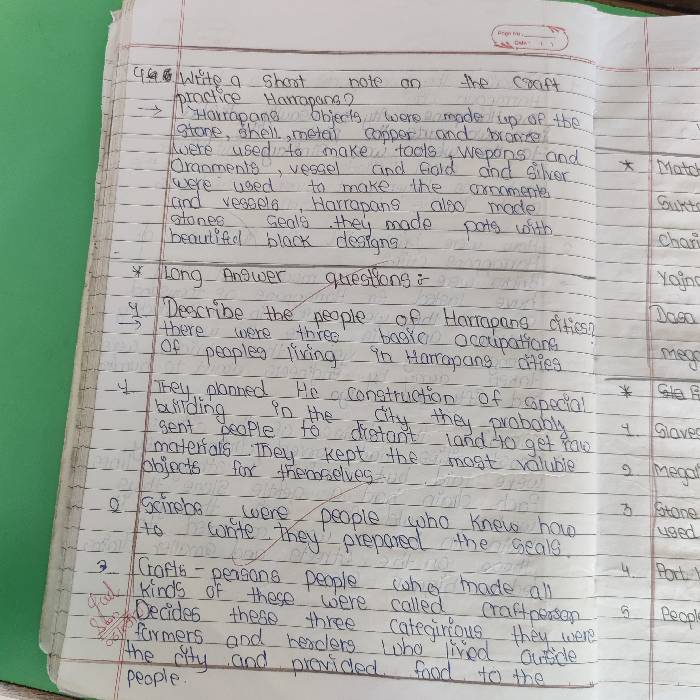 Page No.
Date
Write a short note on the craft
practice Harrapans?
→ Harrapans objects were made up of the
stone, shell, metal copper and bronze
were used to make tools, wepons and
oranments, vessel and Gold and silver
were used to make the ornaments
and vessels, Harrapans also made
stones seals they made pots with
beautiful black designs
* Long Answer questions:-
Describe the people of Harrapans cities?
→ there were three basic occupations
of peoples living in Harrapans cities
1 They planned the construction of special
building in the city they probably
sent people to distant land to get raw
materials They kept the most valuble
objects for themselves
2 Scirebs were people who knew how
to write They prepared the seals.
3 Crafts-persons people who made all
kinds of these were called craftperson
Decides these three categirious they were
farmers and herders who lived outside
the city and provided food to the
people.
* Match
Yajna
Dasa
mega
*
1 Slaves
2 Megal
3 Stone
used
4.
5 People